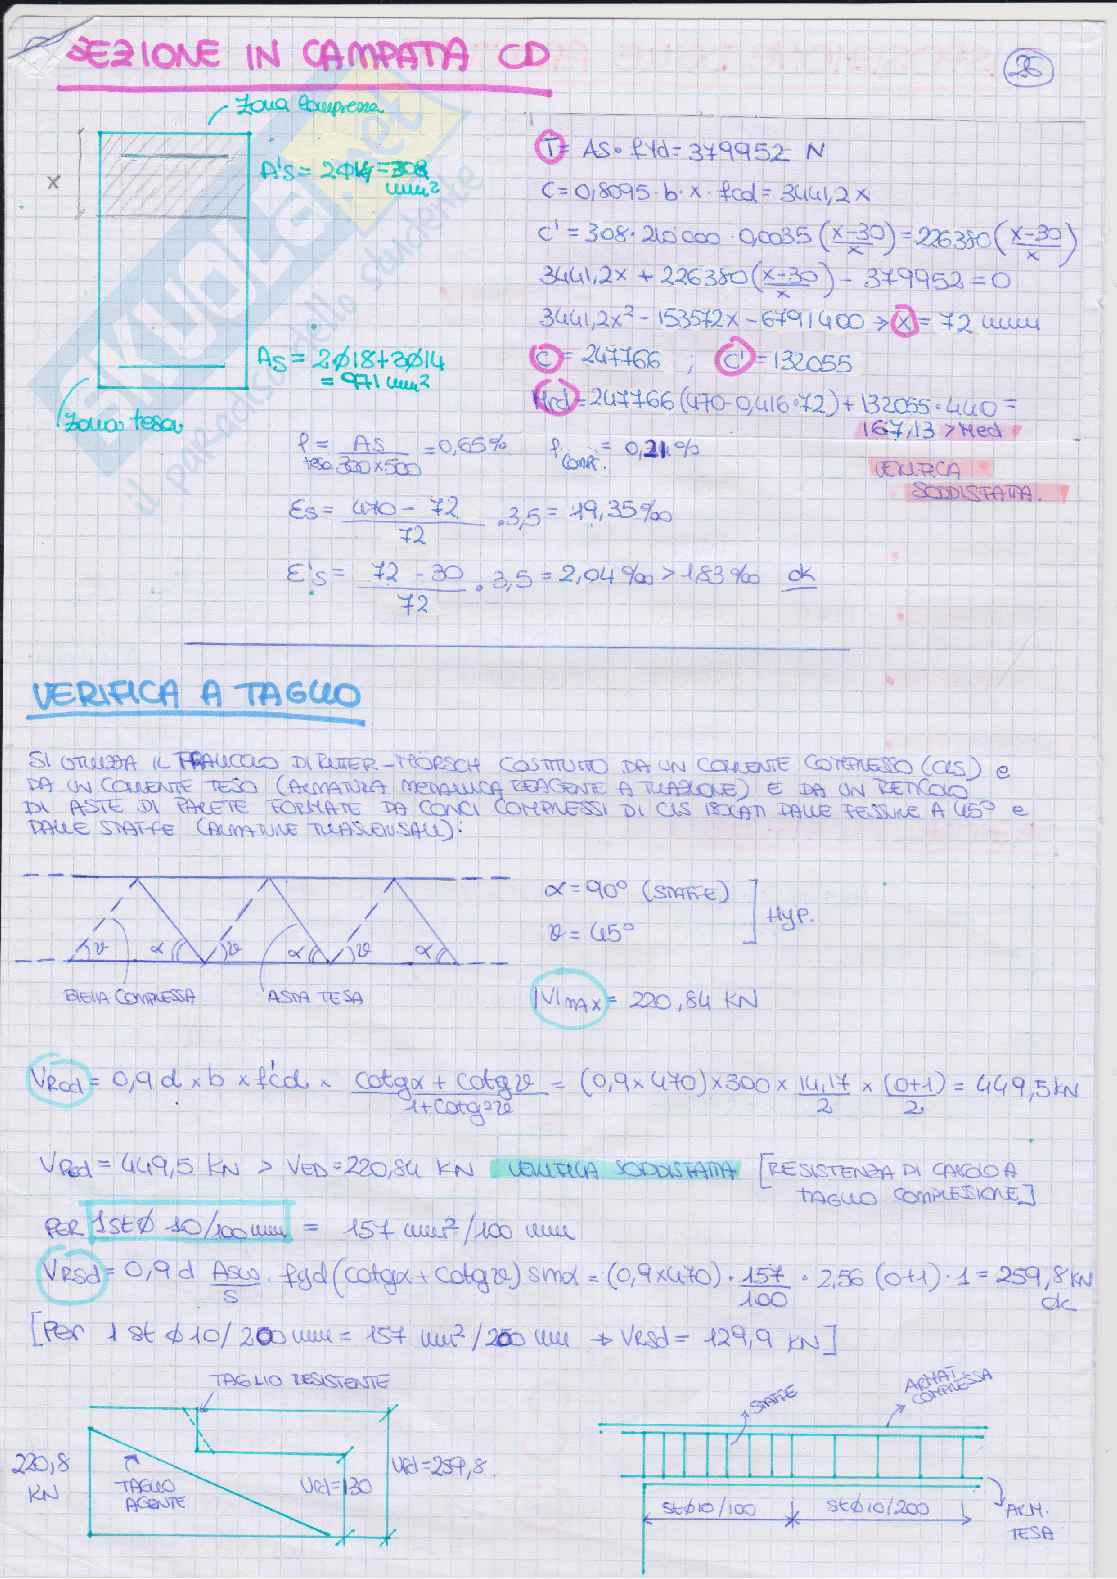 SEZIONE IN CAMPATA CD
26
Zona compressa
x
A's = 2Ø14 = 308 mm²
As = 2Ø18+3Ø14
= 971 mm²
Zona tesa
T = As · fyd = 379952 N
C = 0,8095 · b · x · fcd = 3441,2x
C' = 308 · 210000 · 0,0035 (x-30/x) = 226380 (x-30/x)
3441,2x + 226380 (x-30/x) - 379952 = 0
3441,2x² - 153572x - 6791400 → x = 72 mm
C = 247766 ; C' = 132055
Mrd = 247766 (470-0,416·72) + 132055 · 440 =
167,13 > Med
VERIFICA
SODDISFATTA.
ρ tesa = As / 300×500 = 0,65% ρ compr. = 0,21%
εs = 470 - 72 / 72 · 3,5 = 19,35‰
ε's = 72 - 30 / 72 · 3,5 = 2,04‰ > 1,83‰ ok
VERIFICA A TAGLIO
SI UTILIZZA IL TRALICCIO DI RITTER-MÖRSCH COSTITUITO DA UN CORRENTE COMPRESSO (CLS) e
DA UN CORRENTE TESO (ARMATURA METALLICA REAGENTE A TRAZIONE) E DA UN RETICOLO
DI ASTE DI PARETE FORMATE DA CONCI COMPRESSI DI CLS ISOLATI DALLE FESSURE A 45° e
DALLE STAFFE (ARMATURE TRASVERSALI):
ϑ α ϑ α ϑ α
BIELLA COMPRESSA ASTA TESA
α = 90° (STAFFE)
ϑ = 45°
HYP.
|V|MAX = 220,84 KN
VRcd = 0,9 d × b × f'cd × cotgα + cotgϑ / 1+cotg²ϑ = (0,9×470)×300 × 14,17/2 × (0+1)/2 = 449,5 kN
VRcd = 449,5 KN > VED = 220,84 KN VERIFICA SODDISFATTA [RESISTENZA DI CALCOLO A
TAGLIO COMPRESSIONE]
PER 1 St Ø 10/100 mm = 157 mm²/100 mm
VRSd = 0,9 d Asw/s · fyd (cotgα + cotgϑ) sinα = (0,9×470) · 157/100 · 2,56 (0+1) · 1 = 259,8 KN
ok
[PER 1 St Ø10/200 mm = 157 mm²/200 mm → VRSd = 129,9 KN]
TAGLIO RESISTENTE
220,8
KN
TAGLIO
AGENTE
VRd=130
VRd=259,8
STAFFE
ARMAT.
COMPRESSA
StØ10/100
StØ10/200
ARM.
TESA
SKUOLA.net
il paradiso dello studente